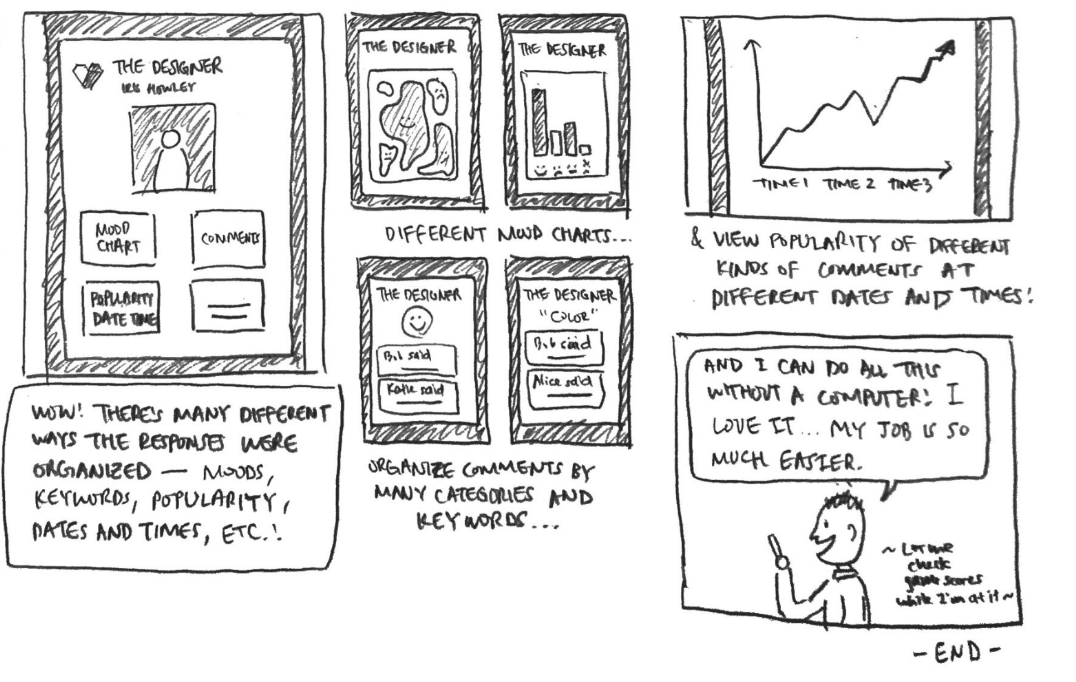 THE DESIGNER
IRIS HOWLEY
MOOD
CHART
COMMENTS
POPULARITY
DATE TIME
WOW! THERE'S MANY DIFFERENT
WAYS THE RESPONSES WERE
ORGANIZED — MOODS,
KEYWORDS, POPULARITY,
DATES AND TIMES, ETC.!
THE DESIGNER
THE DESIGNER
DIFFERENT MOOD CHARTS...
THE DESIGNER
Bob said
Katie said
THE DESIGNER
"COLOR"
Bob said
Alice said
ORGANIZE COMMENTS BY
MANY CATEGORIES AND
KEYWORDS...
TIME 1 TIME 2 TIME 3
& VIEW POPULARITY OF DIFFERENT
KINDS OF COMMENTS AT
DIFFERENT DATES AND TIMES!
AND I CAN DO ALL THIS
WITHOUT A COMPUTER! I
LOVE IT... MY JOB IS SO
MUCH EASIER.
~ Let me
check
game scores
while I'm at it ~
- END -